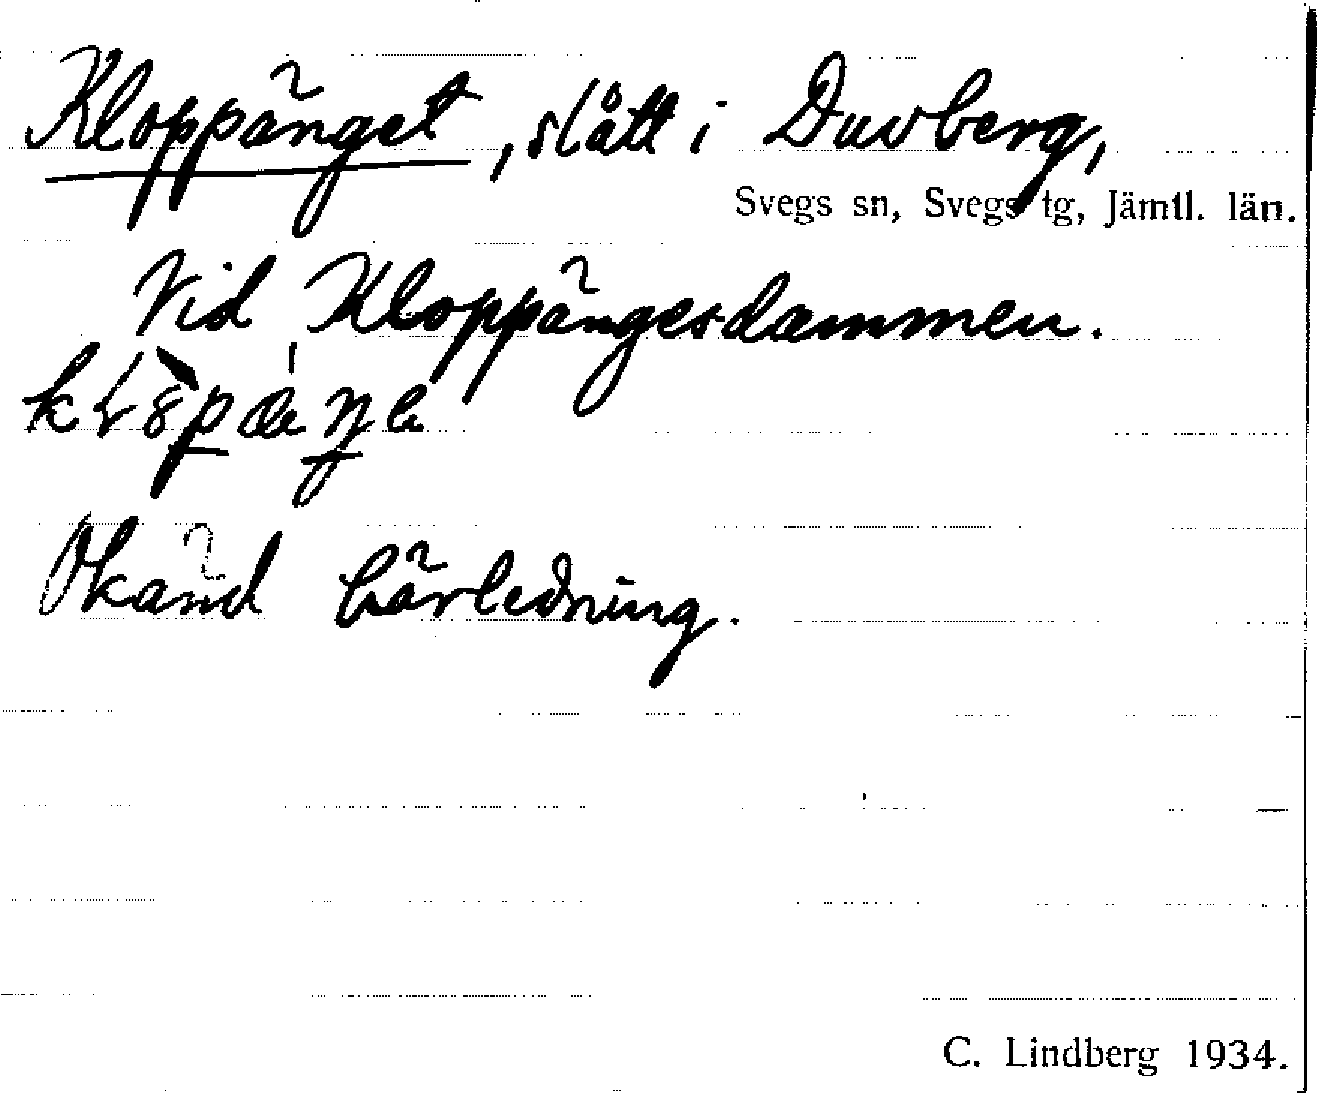 Kloppänget, slått i Duvberg,
Svegs sn, Svegs tg, Jämtl. län.
Vid Kloppängesdammen.
Okänd härledning.
C. Lindberg 1934.